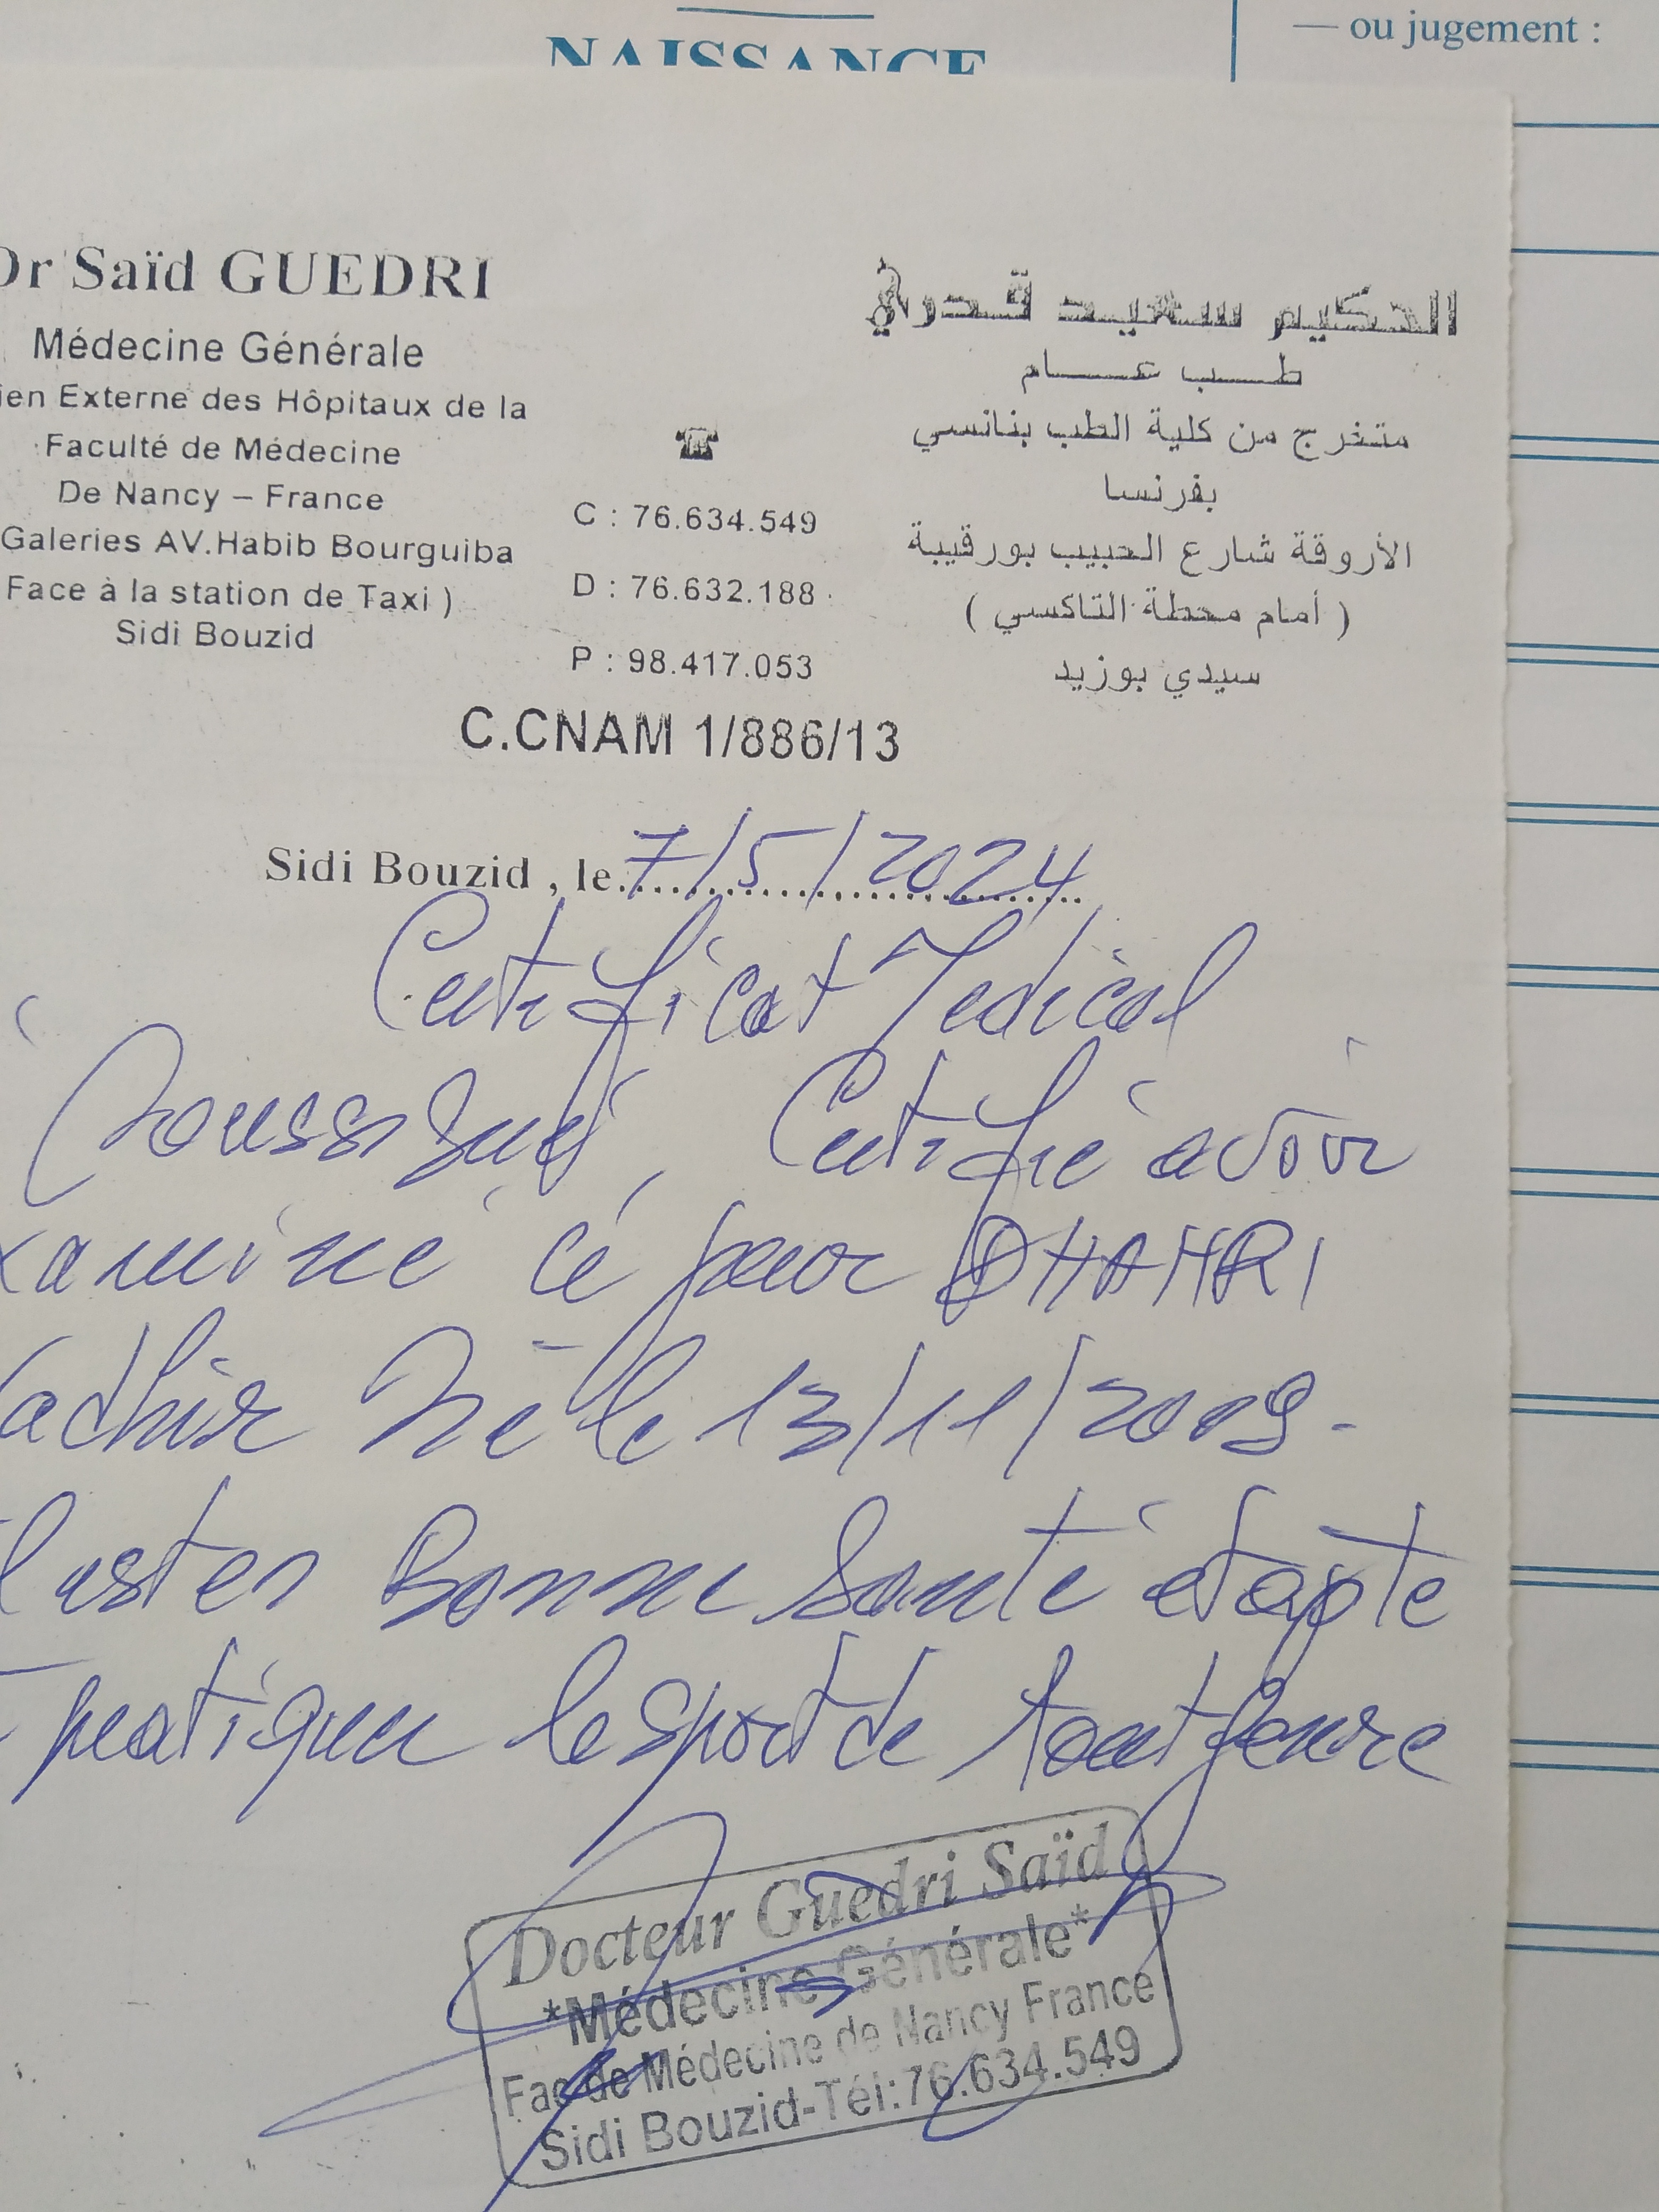 NAISSANCE
— ou jugement :
Dr Saïd GUEDRI
Médecine Générale
ien Externe des Hôpitaux de la
Faculté de Médecine
De Nancy – France
Galeries AV.Habib Bourguiba
Face à la station de Taxi )
Sidi Bouzid
☎
C : 76.634.549
D : 76.632.188
P : 98.417.053
الحكيم سعيد قدري
طب عام
متخرج من كلية الطب بنانسي
بفرنسا
الأروقة شارع الحبيب بورقيبة
( أمام محطة التاكسي )
سيدي بوزيد
C.CNAM 1/886/13
Sidi Bouzid , le 7/5/2024
Certificat Medical
Soussigné, Certifie avoir
xaminé ce jour DHAHRI
Né le 13/11/2009.
l est en Bonne Santé et apte
pratiquer le sport de tout genre
Docteur Guedri Saïd
*Médecine Générale*
Fac de Médecine de Nancy France
Sidi Bouzid-Tél:76.634.549